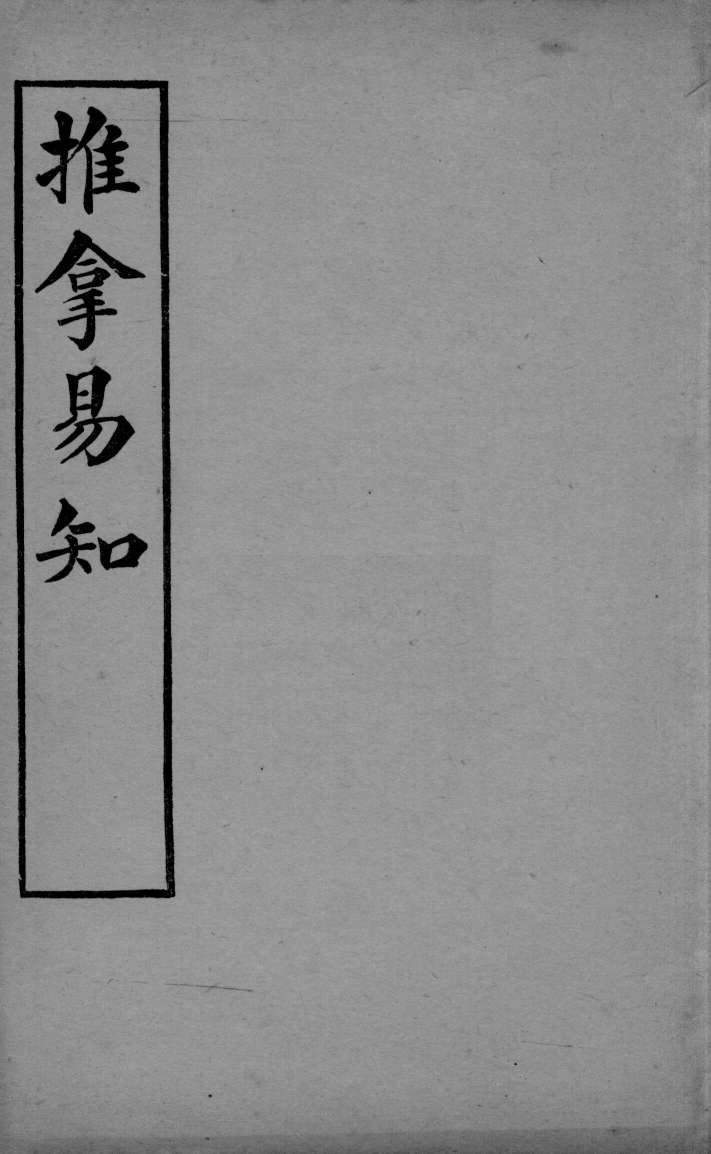 推拿易知